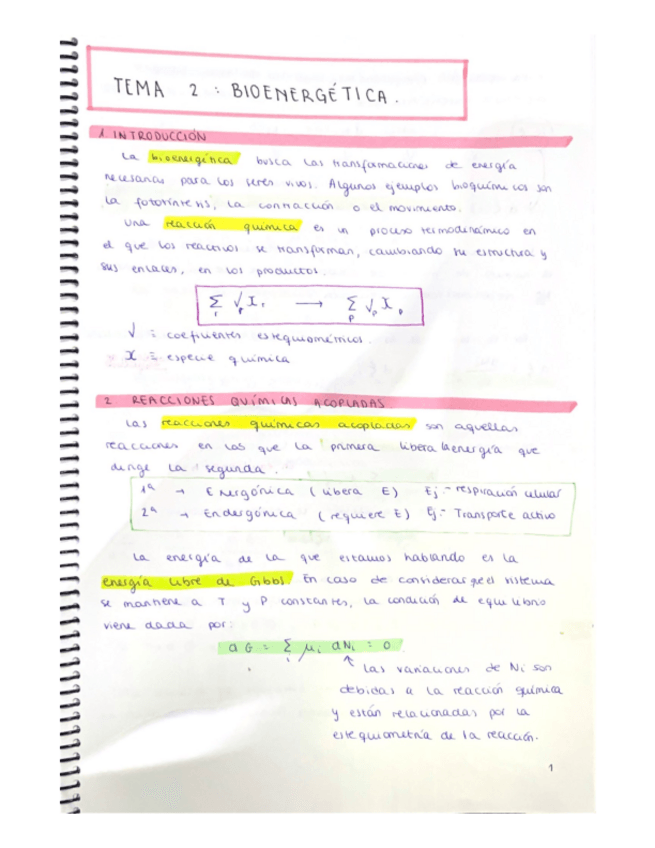 TEMA 2 : BIOENERGÉTICA.
1 INTRODUCCIÓN
La bioenergética busca las transformaciones de energía
necesarias para los seres vivos. Algunos ejemplos bioquímicos son
la fotosíntesis, la contracción o el movimiento.
Una reacción química es un proceso termodinámico en
el que los reactivos se transforman, cambiando su estructura y
sus enlaces, en los productos.
∑ᵢ √ᵣ Xᵣ → ∑ₚ √ₚ Xₚ
√ ≡ coeficientes estequiométricos.
X ≡ especie química
2 REACCIONES QUÍMICAS ACOPLADAS
Las reacciones químicas acopladas son aquellas
reacciones en las que la primera libera la energía que
dirige la segunda.
1ª → Energónica (libera E) Ej.- respiración celular
2ª → Endergónica (requiere E) Ej.- Transporte activo
La energía de la que estamos hablando es la
energía libre de Gibbs. En caso de considerar que el sistema
se mantiene a T y P constantes, la condición de equilibrio
viene dada por:
dG = ∑ᵢ μᵢ dNᵢ = 0
↑ Las variaciones de Ni son
debidas a la reacción química
y están relacionadas por la
estequiometría de la reacción.
1